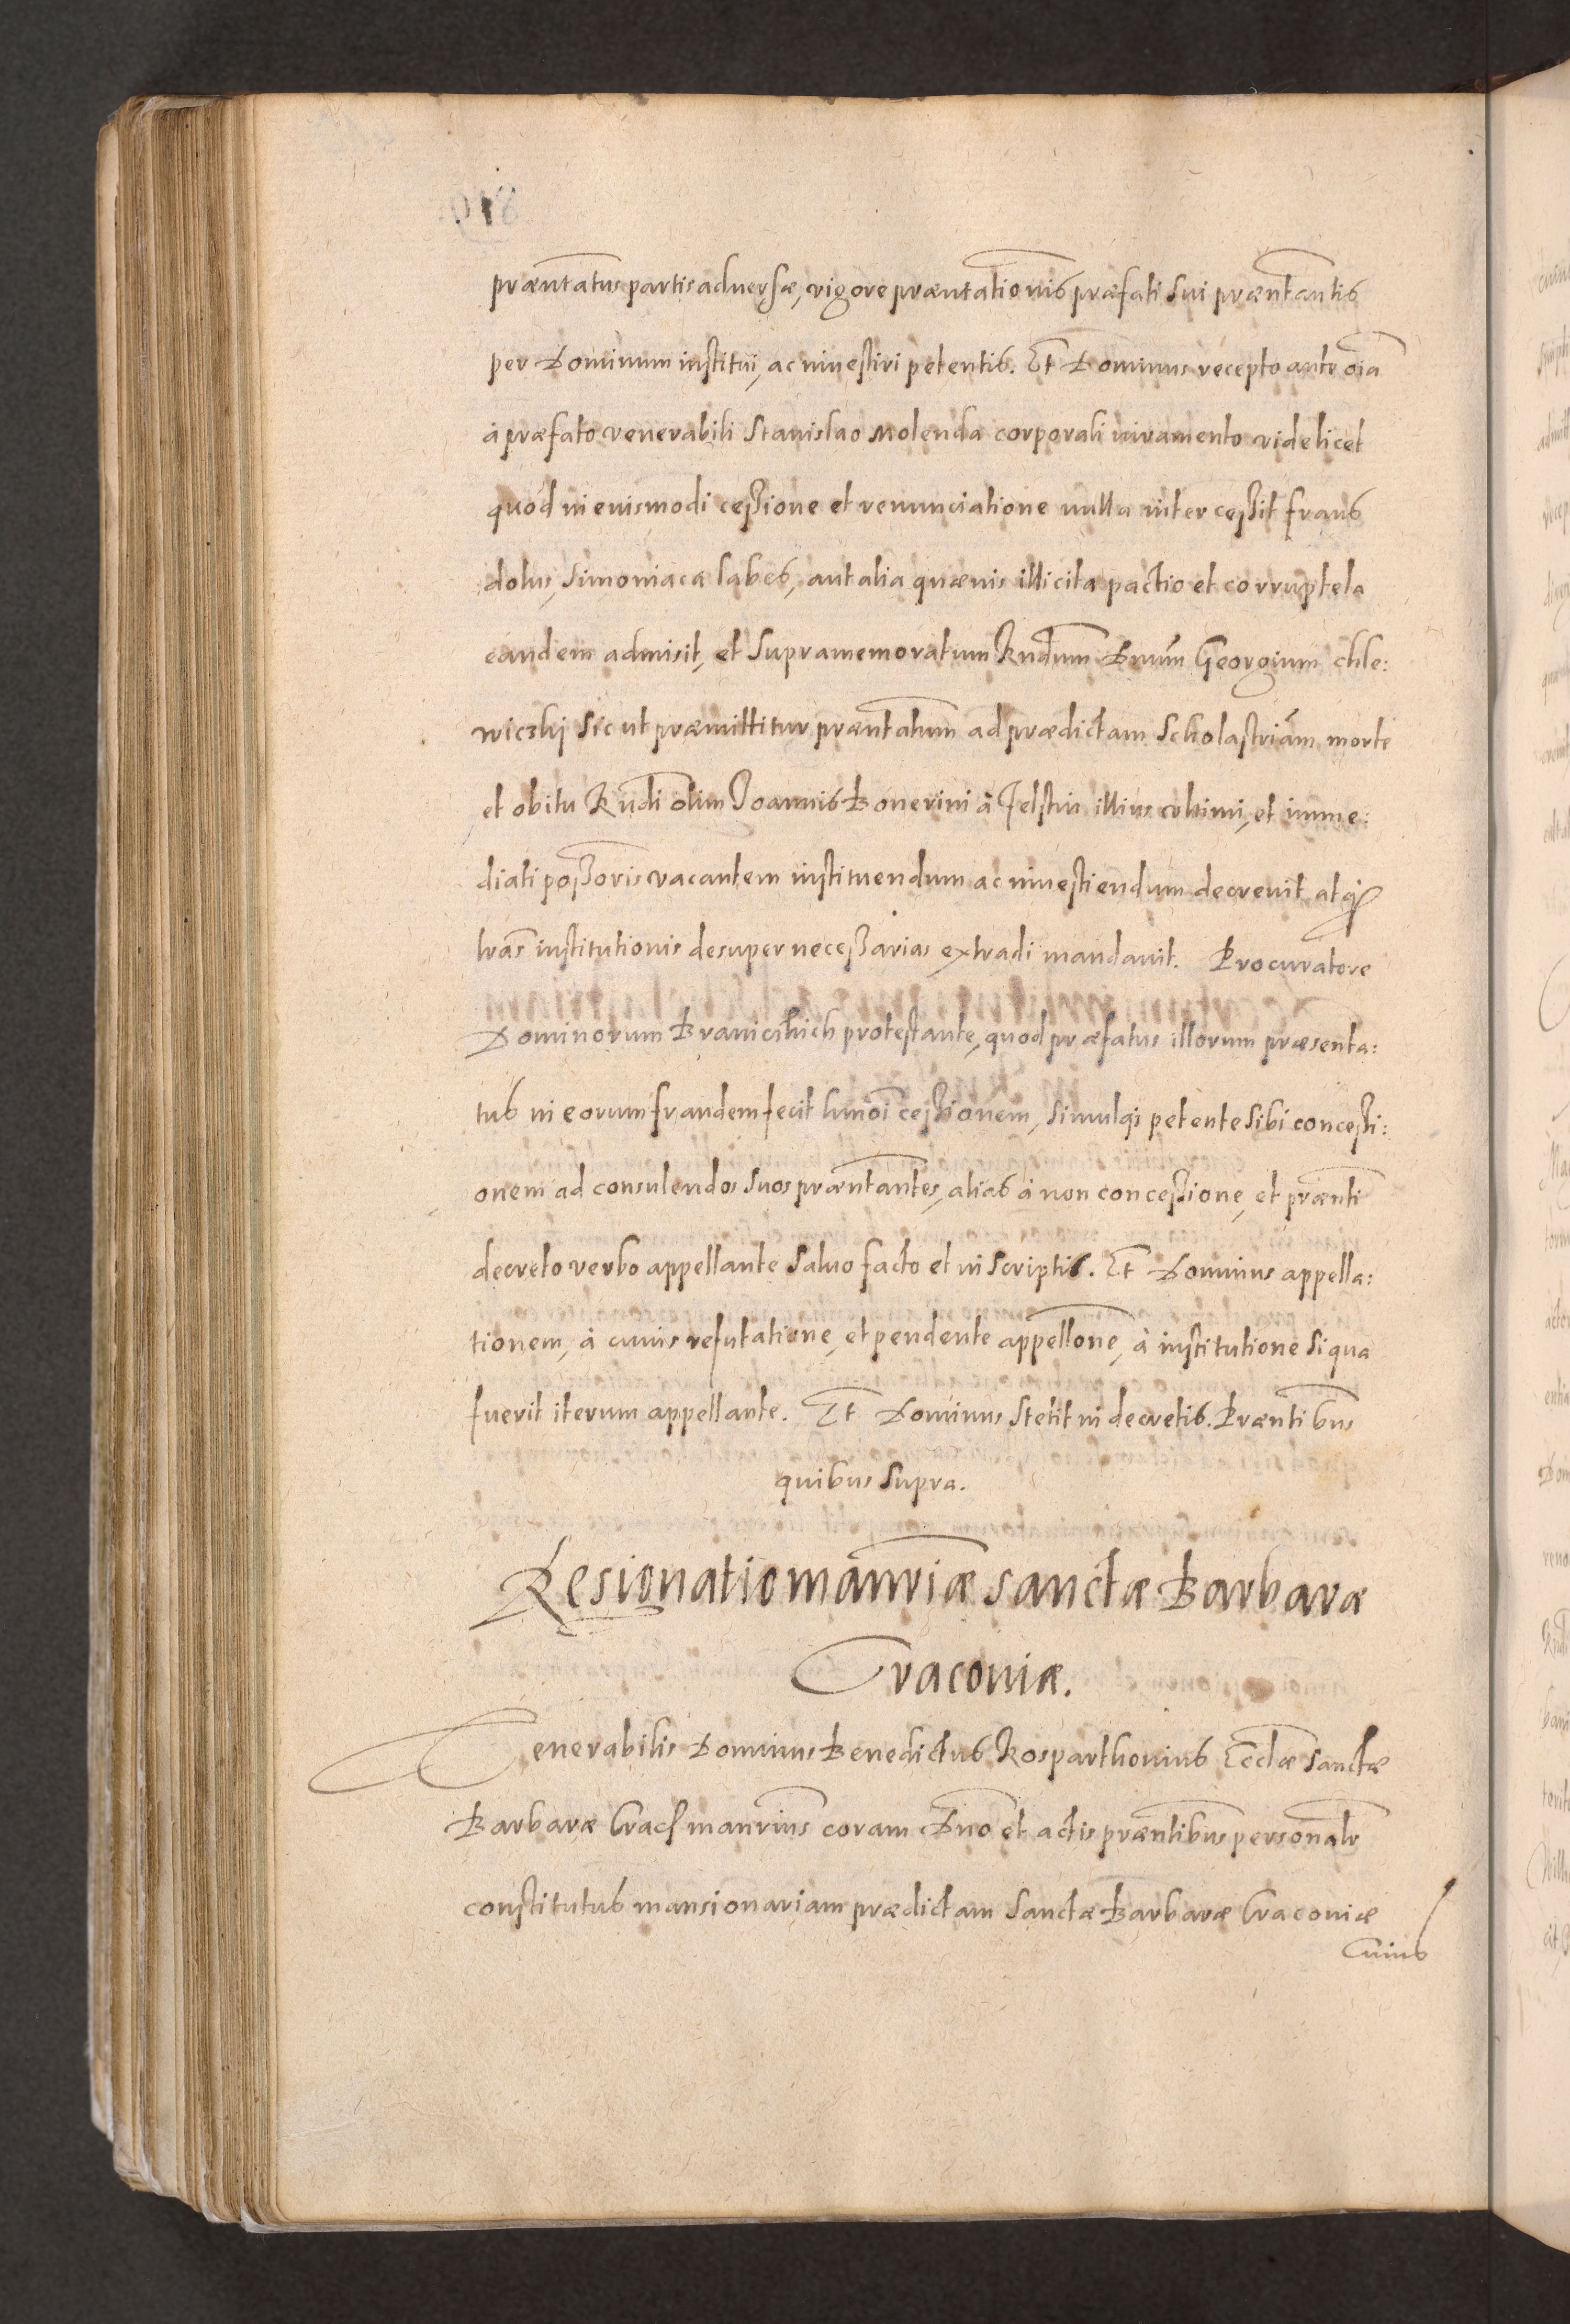 præntatus partis adversæ, vigore præntationis præfati sui præntantis
per Dominum institui, ac investiri petentis. Et Dominus recepto ante oia
à præfato venerabili Stanislao Molenda corporali iuramento videlicet
quod in eiusmodi cessione et renunciatione nulla intercessit fraus
dolus, simoniaca labes, aut alia quævis illicita pactio et corruptela
eandem admisit, et supramemoratum Rndum Dnum Georgium Chle:
wiczkj sicut præmittitur præntatum ad prædictam Scholastriam morte
et obitu Rndi olim Joannis Bonerini à Felstin illius ultimi, et imme:
diati possoris vacantem instituendum ac investiendum decrevit atq
lras institutionis desuper necessarias extradi mandavit. Procuratore
Dominorum Branicthich protestante, quod præfatus illorum præsenta:
tus in eorum fraudem fecit hmoi cessionem, simulq petente sibi concessi:
onem ad consulendos suos præntantes, alias à non concessione, et prænti
decreto verbo appellante salvo facto et in scriptis. Et Dominus appella:
tionem, à cuius refutatione, et pendente appellone, à institutione si qua
fuerit iterum appellante. Et Dominus stetit in decretis. Præntibus
quibus supra.
Resignatio manriæ sanctæ Barbaræ
Cracoviæ.
Venerabilis Dominus Benedictus Kosparthovius Ecclæ sanctæ
Barbaræ Crac manrius coram Dno et actis præntibus personalr
constitutus mansionariam prædictam sanctæ Barbaræ Cracoviæ
Cuius